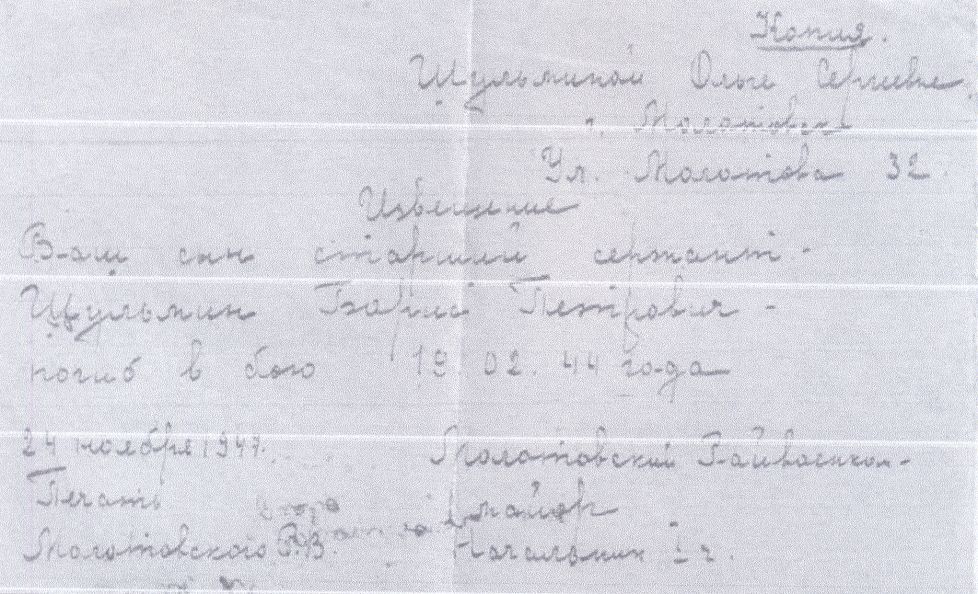 Копия.
Щульминой Ольге Сергеевне
г. Молотовск
Ул. Молотова 32
Извещение
Ваш сын старший сержант -
Щульмин Борис Петрович -
погиб в бою 19.02.44 года
24 ноября 1947. Молотовский Райвоенком-
Печать майор
Молотовского Р.В. Начальник 1 ч.